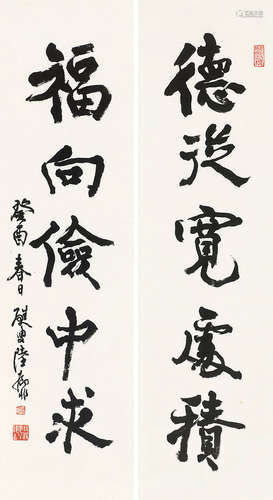 德從寬處積
福向儉中求
癸酉春日